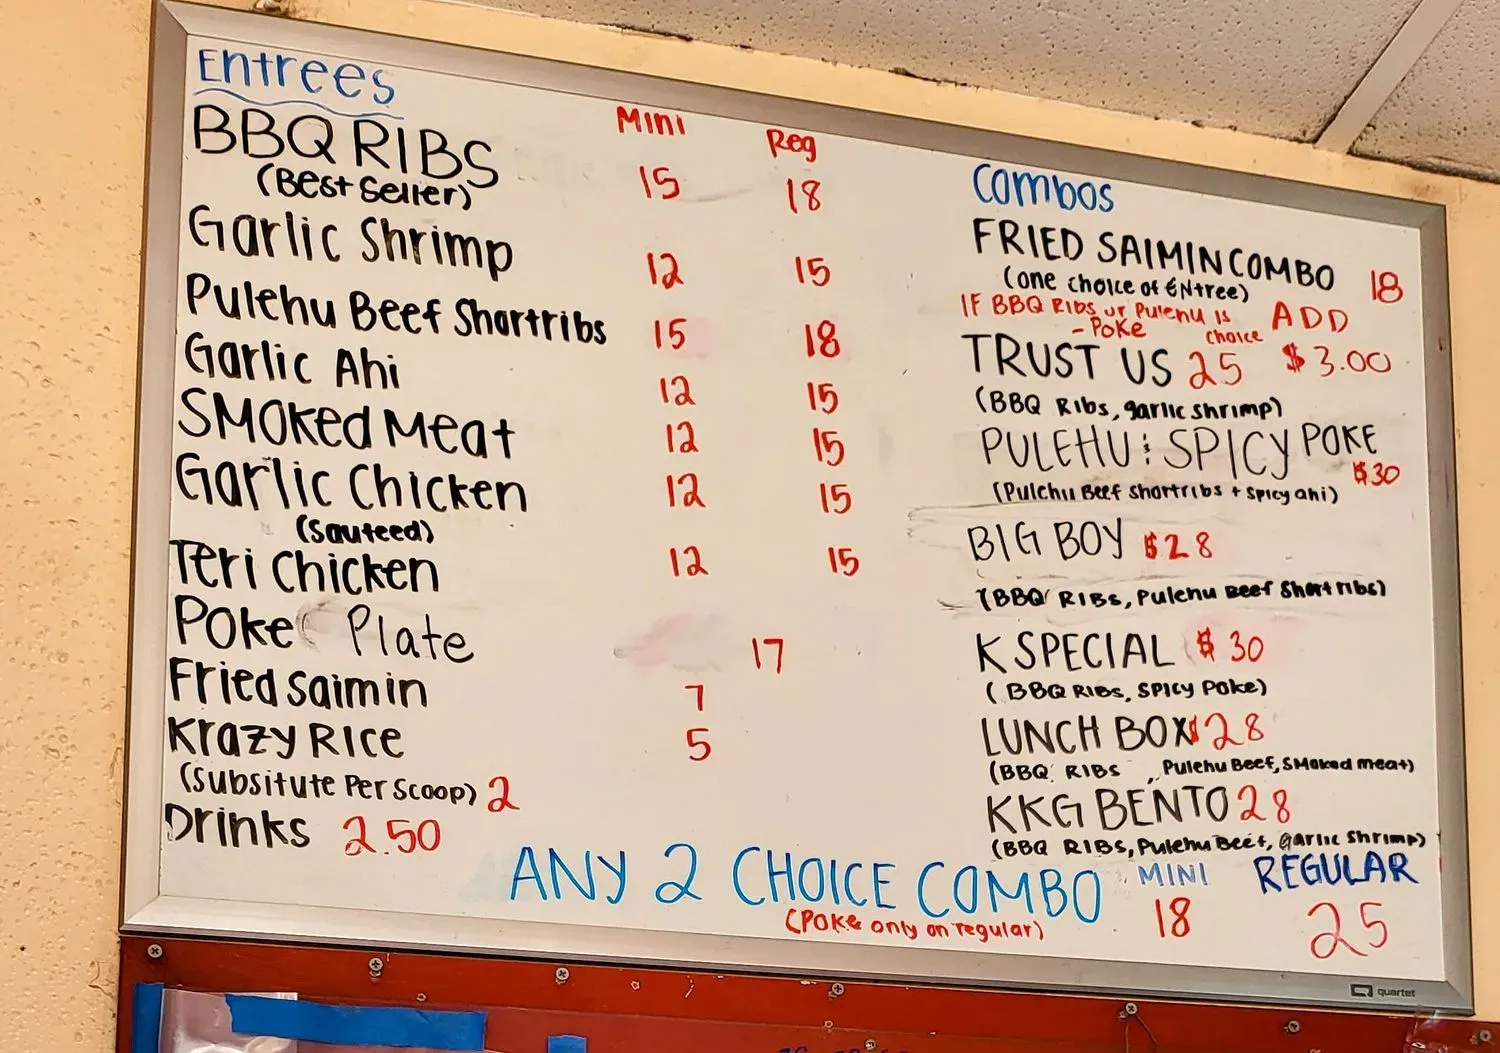 Entrees
Mini Reg
BBQ RIBS 15 18
(Best Seller)
Garlic Shrimp 12 15
Pulehu Beef Shortribs 15 18
Garlic Ahi 12 15
SMOKED MEAT 12 15
Garlic Chicken 12 15
(Sauteed)
Teri Chicken 12 15
Poke Plate 17
Fried Saimin 7
Krazy Rice 5
(Subsitute Per Scoop) 2
Drinks 2.50
Combos
FRIED SAIMIN COMBO 18
(one choice of ENtree)
IF BBQ RIBS or Pulehu IS ADD
- POKE choice
TRUST US 25 $3.00
(BBQ Ribs, garlic shrimp)
PULEHU & SPICY POKE
$30
(Pulehu Beef Shortribs + Spicy ahi)
BIG BOY $28
(BBQ RIBS, Pulehu Beef Shortribs)
K SPECIAL $30
(BBQ RIBS, SPICY POKE)
LUNCH BOX $28
(BBQ RIBS , Pulehu Beef, SMoked meat)
KKG BENTO 28
(BBQ RIBS, Pulehu Beef, Garlic Shrimp)
ANY 2 CHOICE COMBO MINI REGULAR
(POKE only on regular) 18 25
quartet